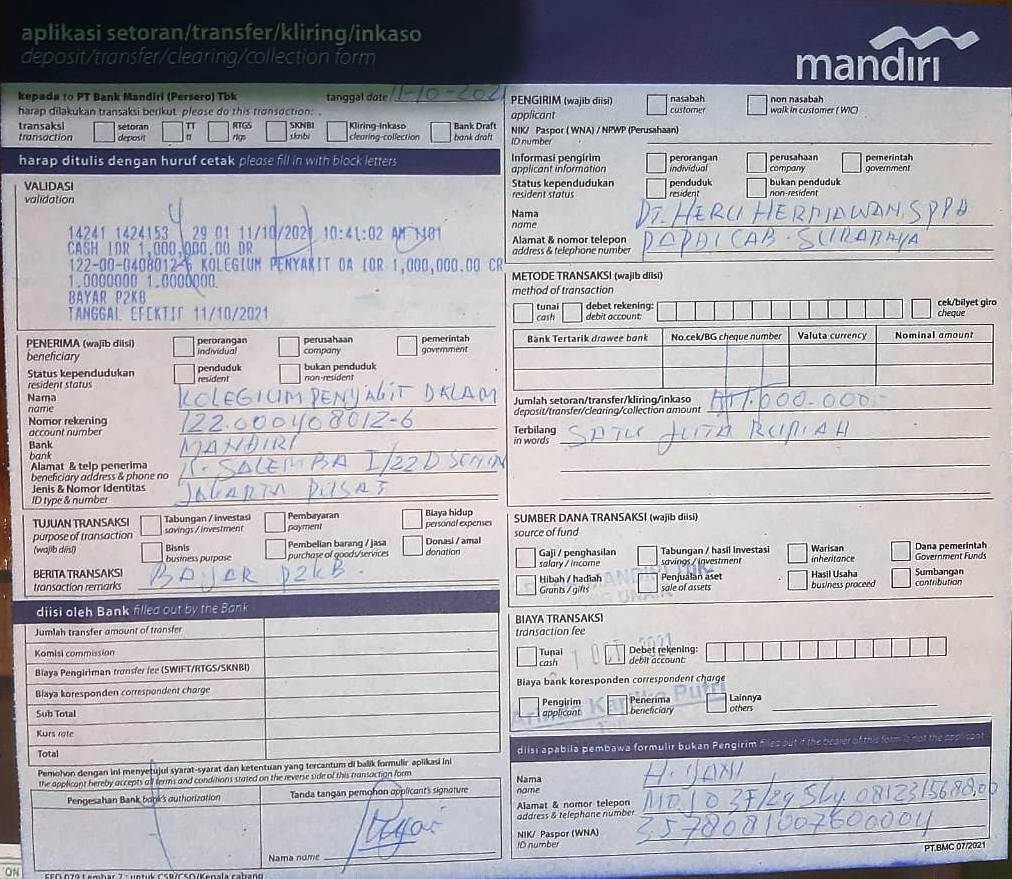 aplikasi setoran/transfer/kliring/inkaso
deposit/transfer/clearing/collection form
mandiri
kepada to PT Bank Mandiri (Persero) Tbk tanggal date 11-10-2021
harap dilakukan transaksi berikut please do this transaction:
transaksi transaction
setoran deposit
TT tt
RTGS rtgs
SKNBI sknbi
Kliring-inkaso clearing-collection
Bank Draft bank draft
harap ditulis dengan huruf cetak please fill in with block letters
VALIDASI
validation
14241 1424153 29 01 11/10/2021 10:41:02 AM
CASH IDR 1,000,000.00 DR
122-00-0408012-6 KOLEGIUM PENYAKIT DA IDR 1,000,000.00 CR
1.0000000 1.0000000
BAYAR P2KB
TANGGAL EFEKTIF 11/10/2021
PENERIMA (wajib diisi)
beneficiary
perorangan individual
perusahaan company
pemerintah government
Status kependudukan
resident status
penduduk resident
bukan penduduk non-resident
Nama
name
KOLEGIUM PENYAKIT DALAM
Nomor rekening
account number
122.000408012-6
Bank
bank
MANDIRI
Alamat & telp penerima
beneficiary address & phone no
SALEMBA I/22D
Jenis & Nomor Identitas
ID type & number
JAKARTA PUSAT
TUJUAN TRANSAKSI
purpose of transaction
(wajib diisi)
Tabungan / investasi savings / investment
Pembayaran payment
Biaya hidup personal expenses
Bisnis business purpose
Pembelian barang / jasa purchase of goods/services
Donasi / amal donation
BERITA TRANSAKSI
transaction remarks
BAJAR P2KB
diisi oleh Bank filled out by the Bank
Jumlah transfer amount of transfer
Komisi commission
Biaya Pengiriman transfer fee (SWIFT/RTGS/SKNBI)
Biaya koresponden correspondent charge
Sub Total
Kurs rate
Total
Pemohon dengan ini menyetujui syarat-syarat dan ketentuan yang tercantum di balik formulir aplikasi ini
the applicant hereby accepts all terms and conditions stated on the reverse side of this transaction form
Pengesahan Bank bank's authorization
Tanda tangan pemohon applicant's signature
Nama name
PENGIRIM (wajib diisi)
applicant
nasabah customer
non nasabah walk in customer (WIC)
NIK/ Paspor (WNA) / NPWP (Perusahaan)
ID number
Informasi pengirim
applicant information
perorangan individual
perusahaan company
pemerintah government
Status kependudukan
resident status
penduduk resident
bukan penduduk non-resident
Nama
name
DT. HERU HERMAWAN. SPPD
Alamat & nomor telepon
address & telephone number
PAPDI CAB. SURABAYA
METODE TRANSAKSI (wajib diisi)
method of transaction
tunai cash
debet rekening: debit account:
cek/bilyet giro cheque
Bank Tertarik drawee bank
No.cek/BG cheque number
Valuta currency
Nominal amount
Jumlah setoran/transfer/kliring/inkaso
deposit/transfer/clearing/collection amount
1.000.000,-
Terbilang
in words
SATU JUTA RUPIAH
SUMBER DANA TRANSAKSI (wajib diisi)
source of fund
Gaji / penghasilan salary / income
Tabungan / hasil Investasi savings / investment
Warisan inheritance
Dana pemerintah Government Funds
Hibah / hadiah Grants / gifts
Penjualan aset sale of assets
Hasil Usaha business proceed
Sumbangan contribution
BIAYA TRANSAKSI
transaction fee
Tunai cash
Debet rekening: debit account:
Biaya bank koresponden correspondent charge
Pengirim applicant
Penerima beneficiary
Lainnya others
diisi apabila pembawa formulir bukan Pengirim filled out if the bearer of this form is not the applicant
Nama
name
H. YANI
Alamat & nomor telepon
address & telephone number
MOJO 3F/29 Sby.
NIK/ Paspor (WNA)
ID number
3578081007600004
PT.BMC 07/2021